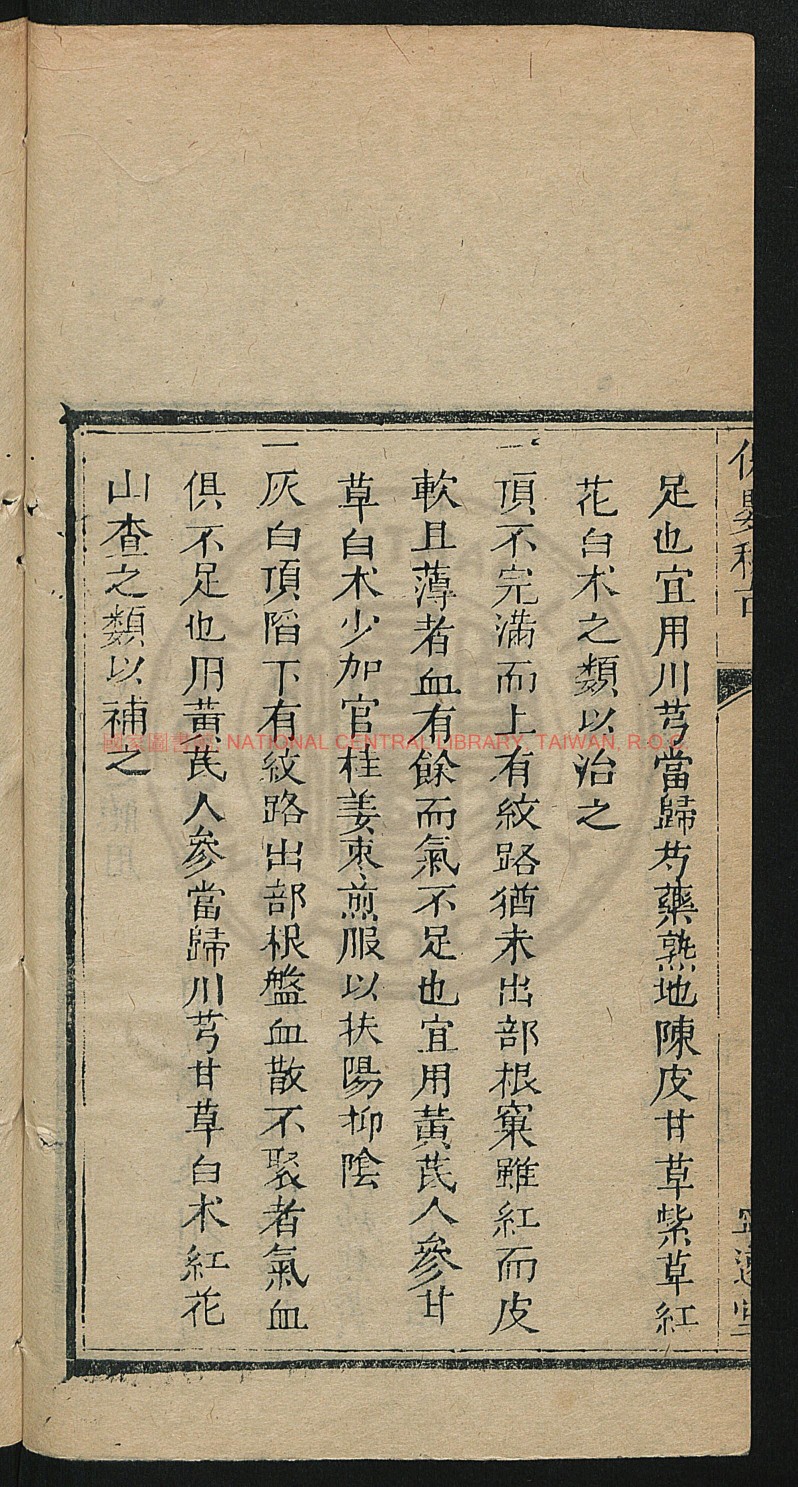 足也宜用川芎當歸芍藥熟地陳皮甘草紫草紅
花白术之類以治之
一頂不完滿而上有紋路猶未出部根窠雖紅而皮
軟且薄者血有餘而氣不足也宜用黃芪人參甘
草白术少加官桂姜棗煎服以扶陽抑陰
一灰白頂陷下有紋路出部根盤血散不聚者氣血
俱不足也用黃芪人參當歸川芎甘草白术紅花
山查之類以補之
國家圖書館 NATIONAL CENTRAL LIBRARY, TAIWAN, R.O.C.